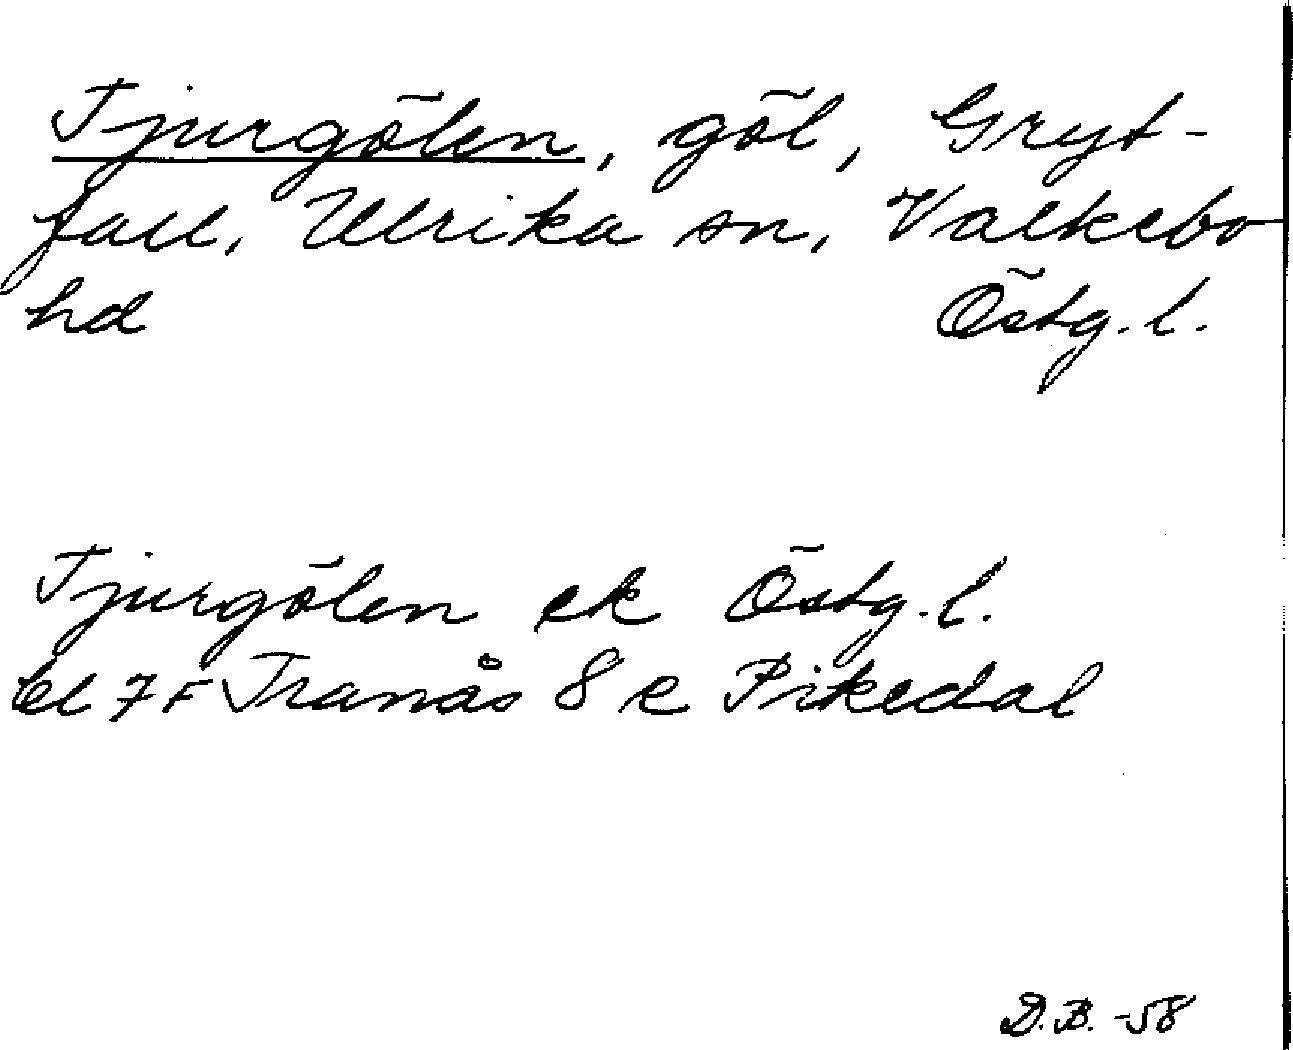 Tjurgölen, göl, Gryt-
fall, Ulrika sn, Valkebo
hd Östg. l.
Tjurgölen ek Östg. l.
bl 7 F Tranås 8 e Pikedal
D.B. -58